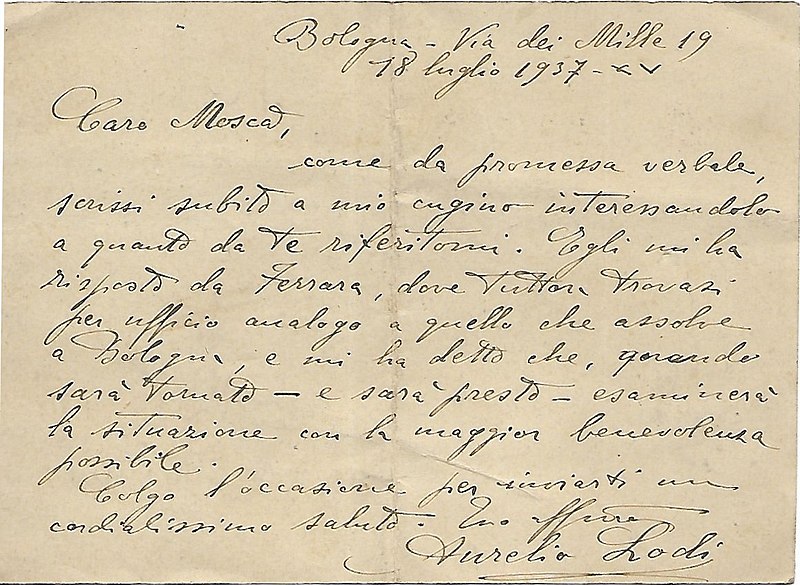 Bologna - Via dei Mille 19
18 luglio 1937 - XV
Caro Mosca,
come da promessa verbale,
scrissi subito a mio cugino interessandolo
a quanto da te riferitomi. Egli mi ha
risposto da Ferrara, dove tuttora trovasi
per ufficio analogo a quello che assolve
a Bologna, e mi ha detto che, quando
sarà tornato - e sarà presto - esaminerà
la situazione con la maggior benevolenza
possibile.
Colgo l'occasione per inviarti un
cordialissimo saluto. Tuo
Aurelio Lodi